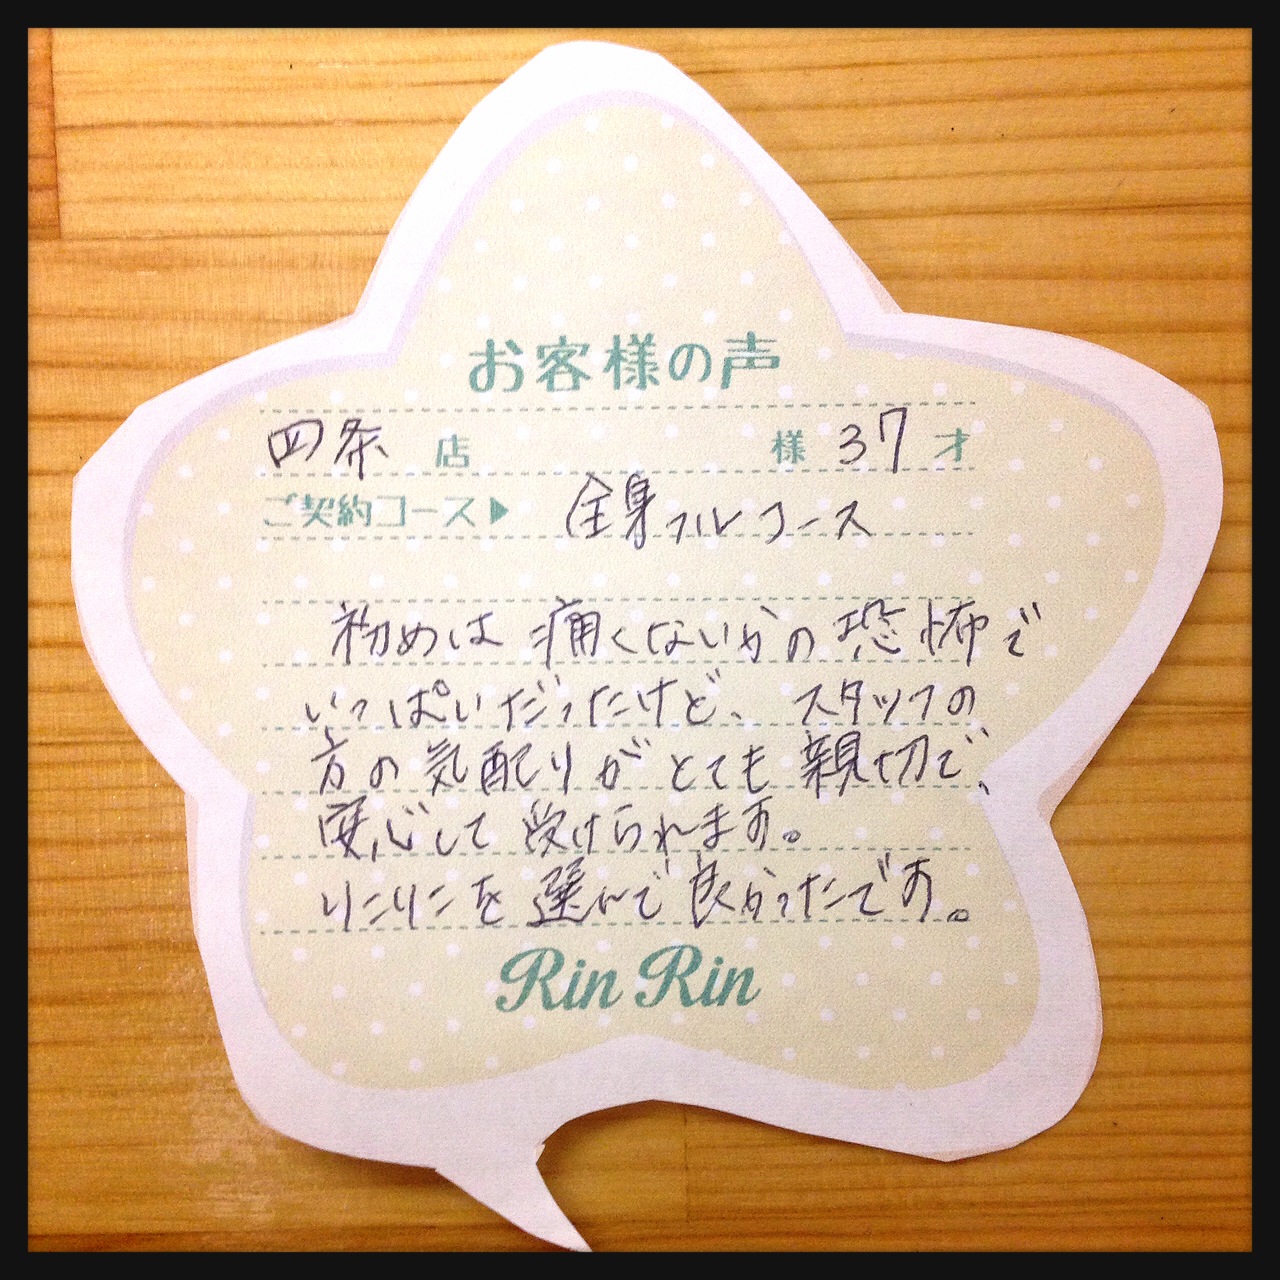 お客様の声
四条 店 様 37 才
ご契約コース▶ 全身フルコース
初めは痛くないかの恐怖で
いっぱいだったけど、スタッフの
方の気配りがとても親切で、
安心して受けられます。
りんりんを選んで良かったです。
Rin Rin